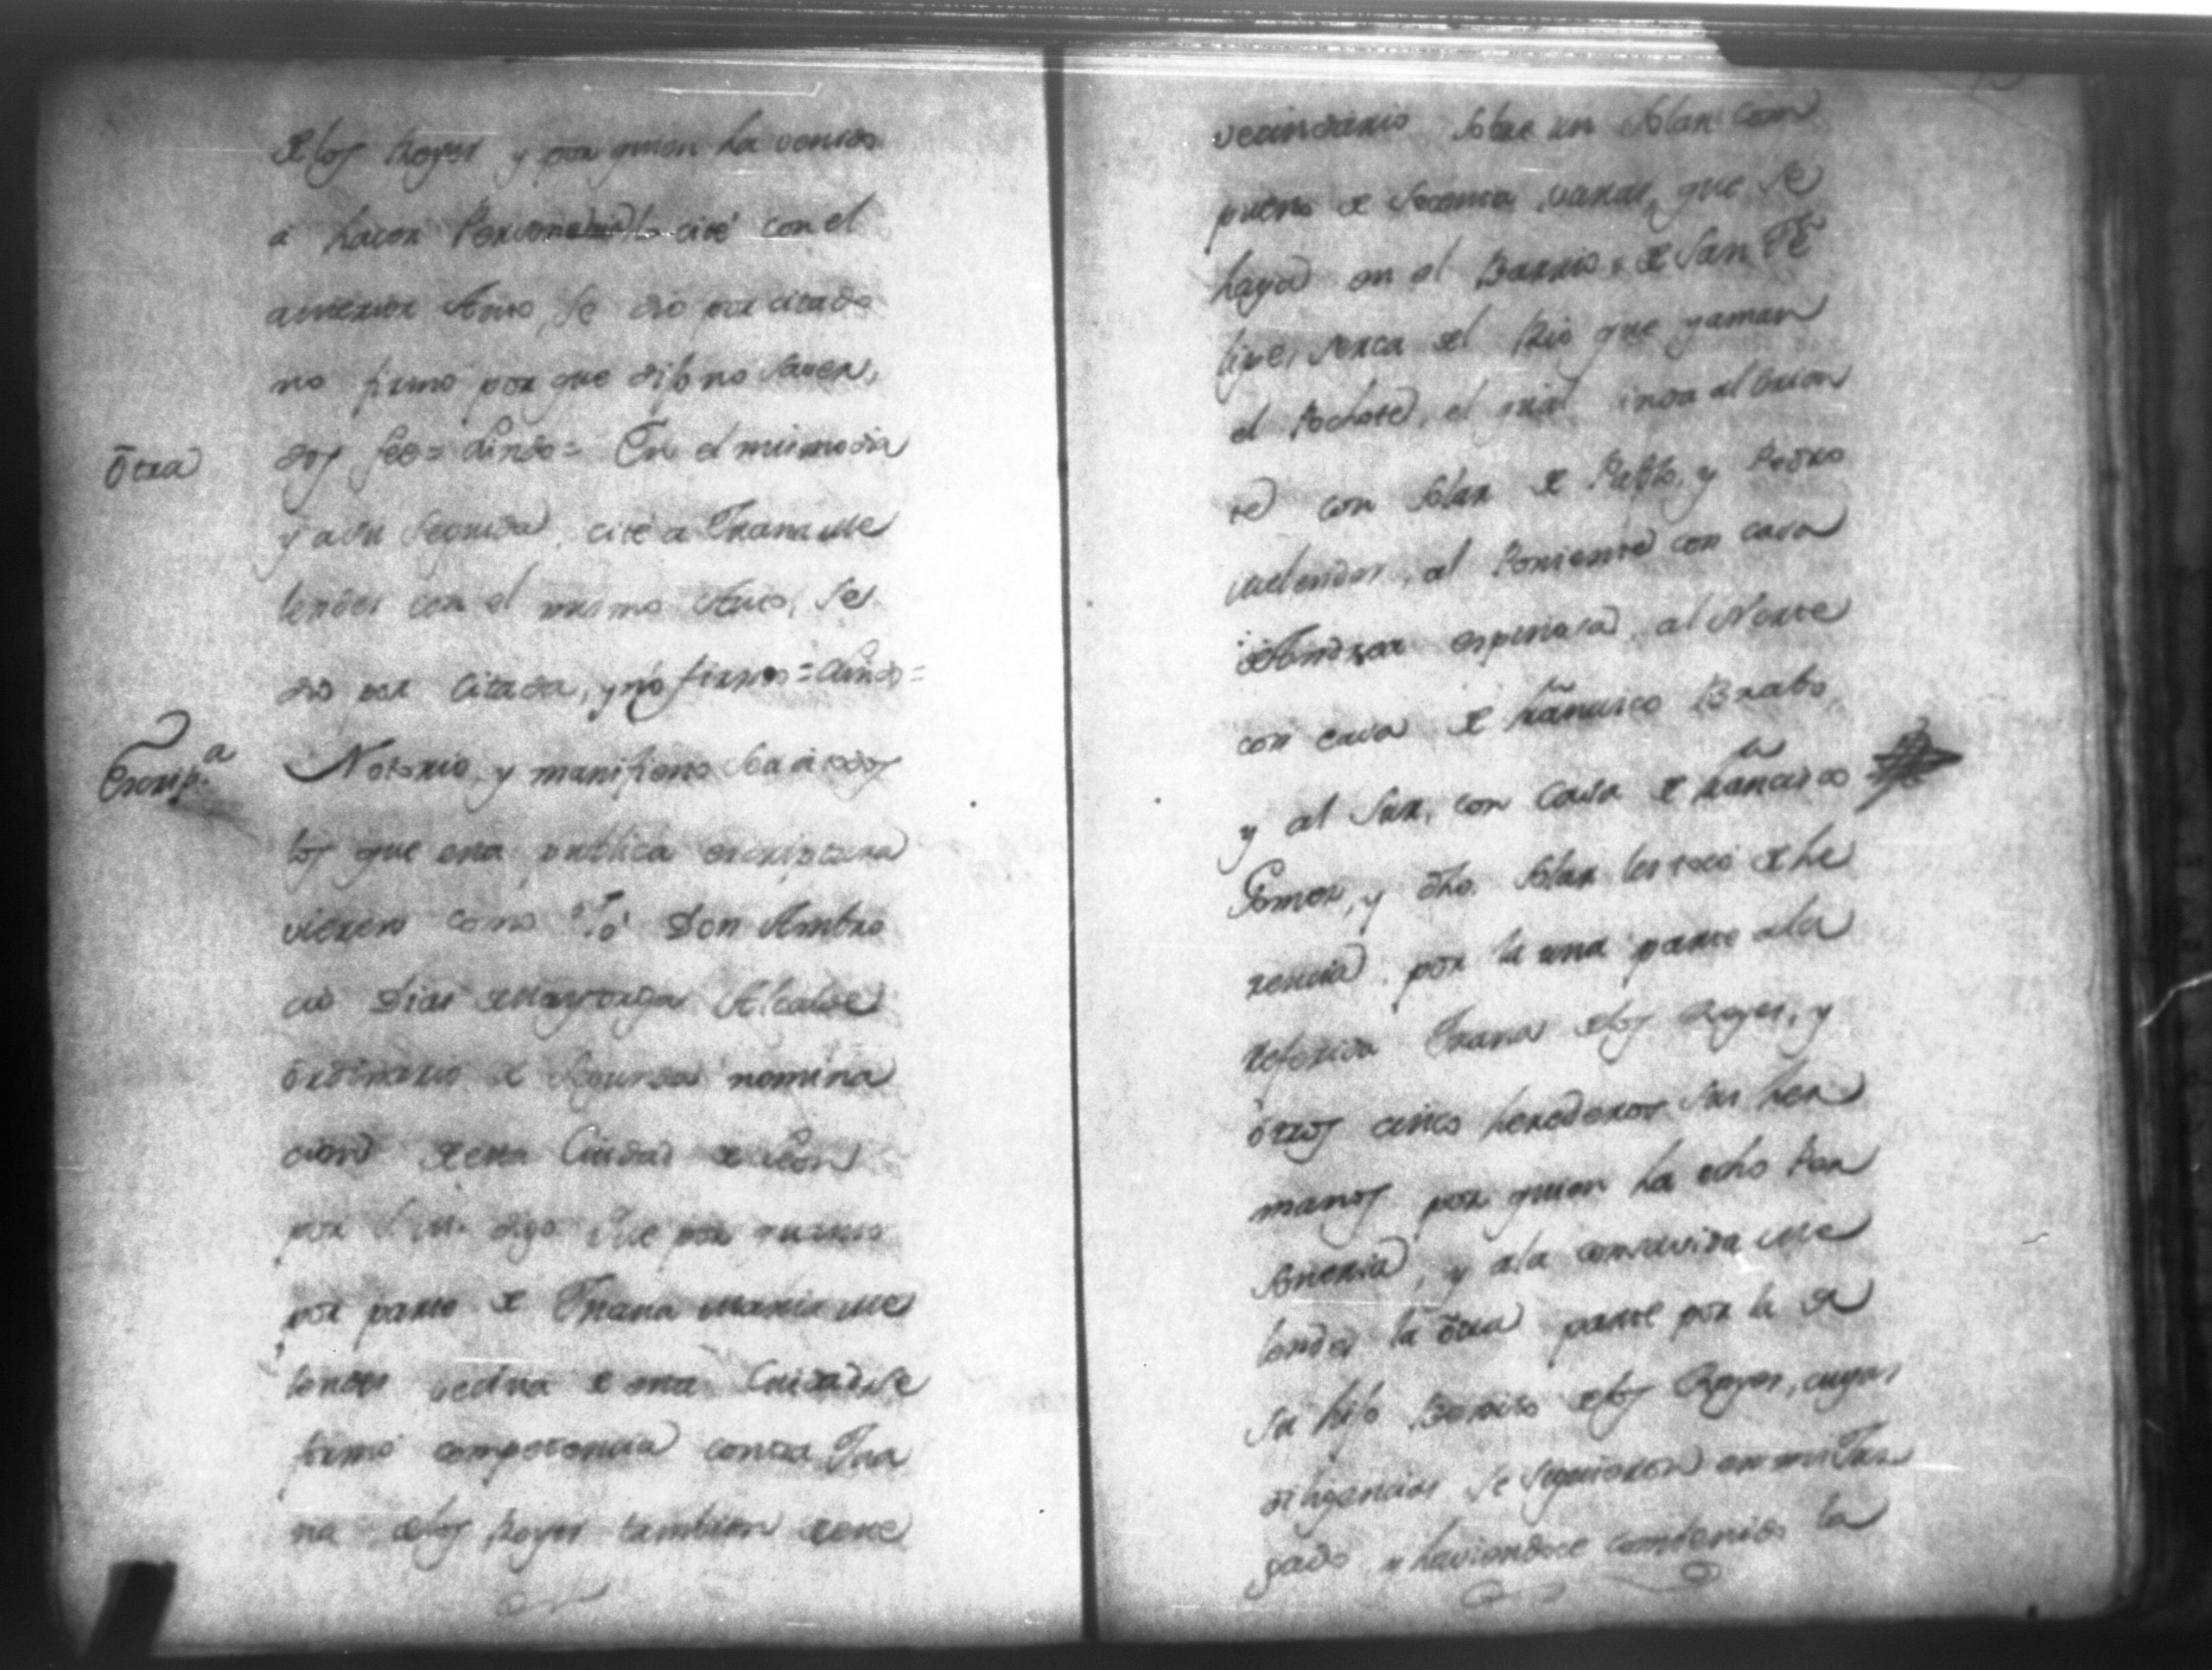 de los Reyes y por quien ha venido
a hacer Personeria la cité con el
anterior Auto, se dio por citada
no firmó por que dijo no saver,
Otra
doy fee = Lindo = En el mismo dia
y a su seguida, cité a Juana Me
lendes con el mismo Auto, se
dio por citada, y no firmó = Lindo =
Escrip.a
Notorio, y manifiesto sea a todos
los que esta publica escriptura
vieren como Yó Don Ambro
cio Dias de Mayorga Alcalde
ordinario de segunda nomina
cion de esta Ciudad de Leon
por S. M. digo Que por quanto
por parte de Juana Maria Me
lendes vecina de esta Ciudad se
formó competencia contra Jua
na de los Reyes tambien de este
vecindario sobre un solar com
puesto de sesenta varas, que se
haya en el Barrio de San Fe
lipe, serca del Rio que yaman
el Pochote, el qual linda al Orien
te con solar de Pablo, y Pedro
Melendes, al Poniente con casa
de Andrea espinosa, al Norte
con casa de Francisco Brabo,
y al Sur, con Casa de Francisco
Gomes, y dho. solar les tocó de he
rencia por la una parte a la
referida Juana de los Reyes, y
otros cinco herederos sus her
manos por quien ha echo Per
soneria, y a la comovida Me
lendes la otra parte por la de
su hijo Benito de los Reyes, cuyas
diligencias se siguieron en mi Jus
gado y haviendose contenido la